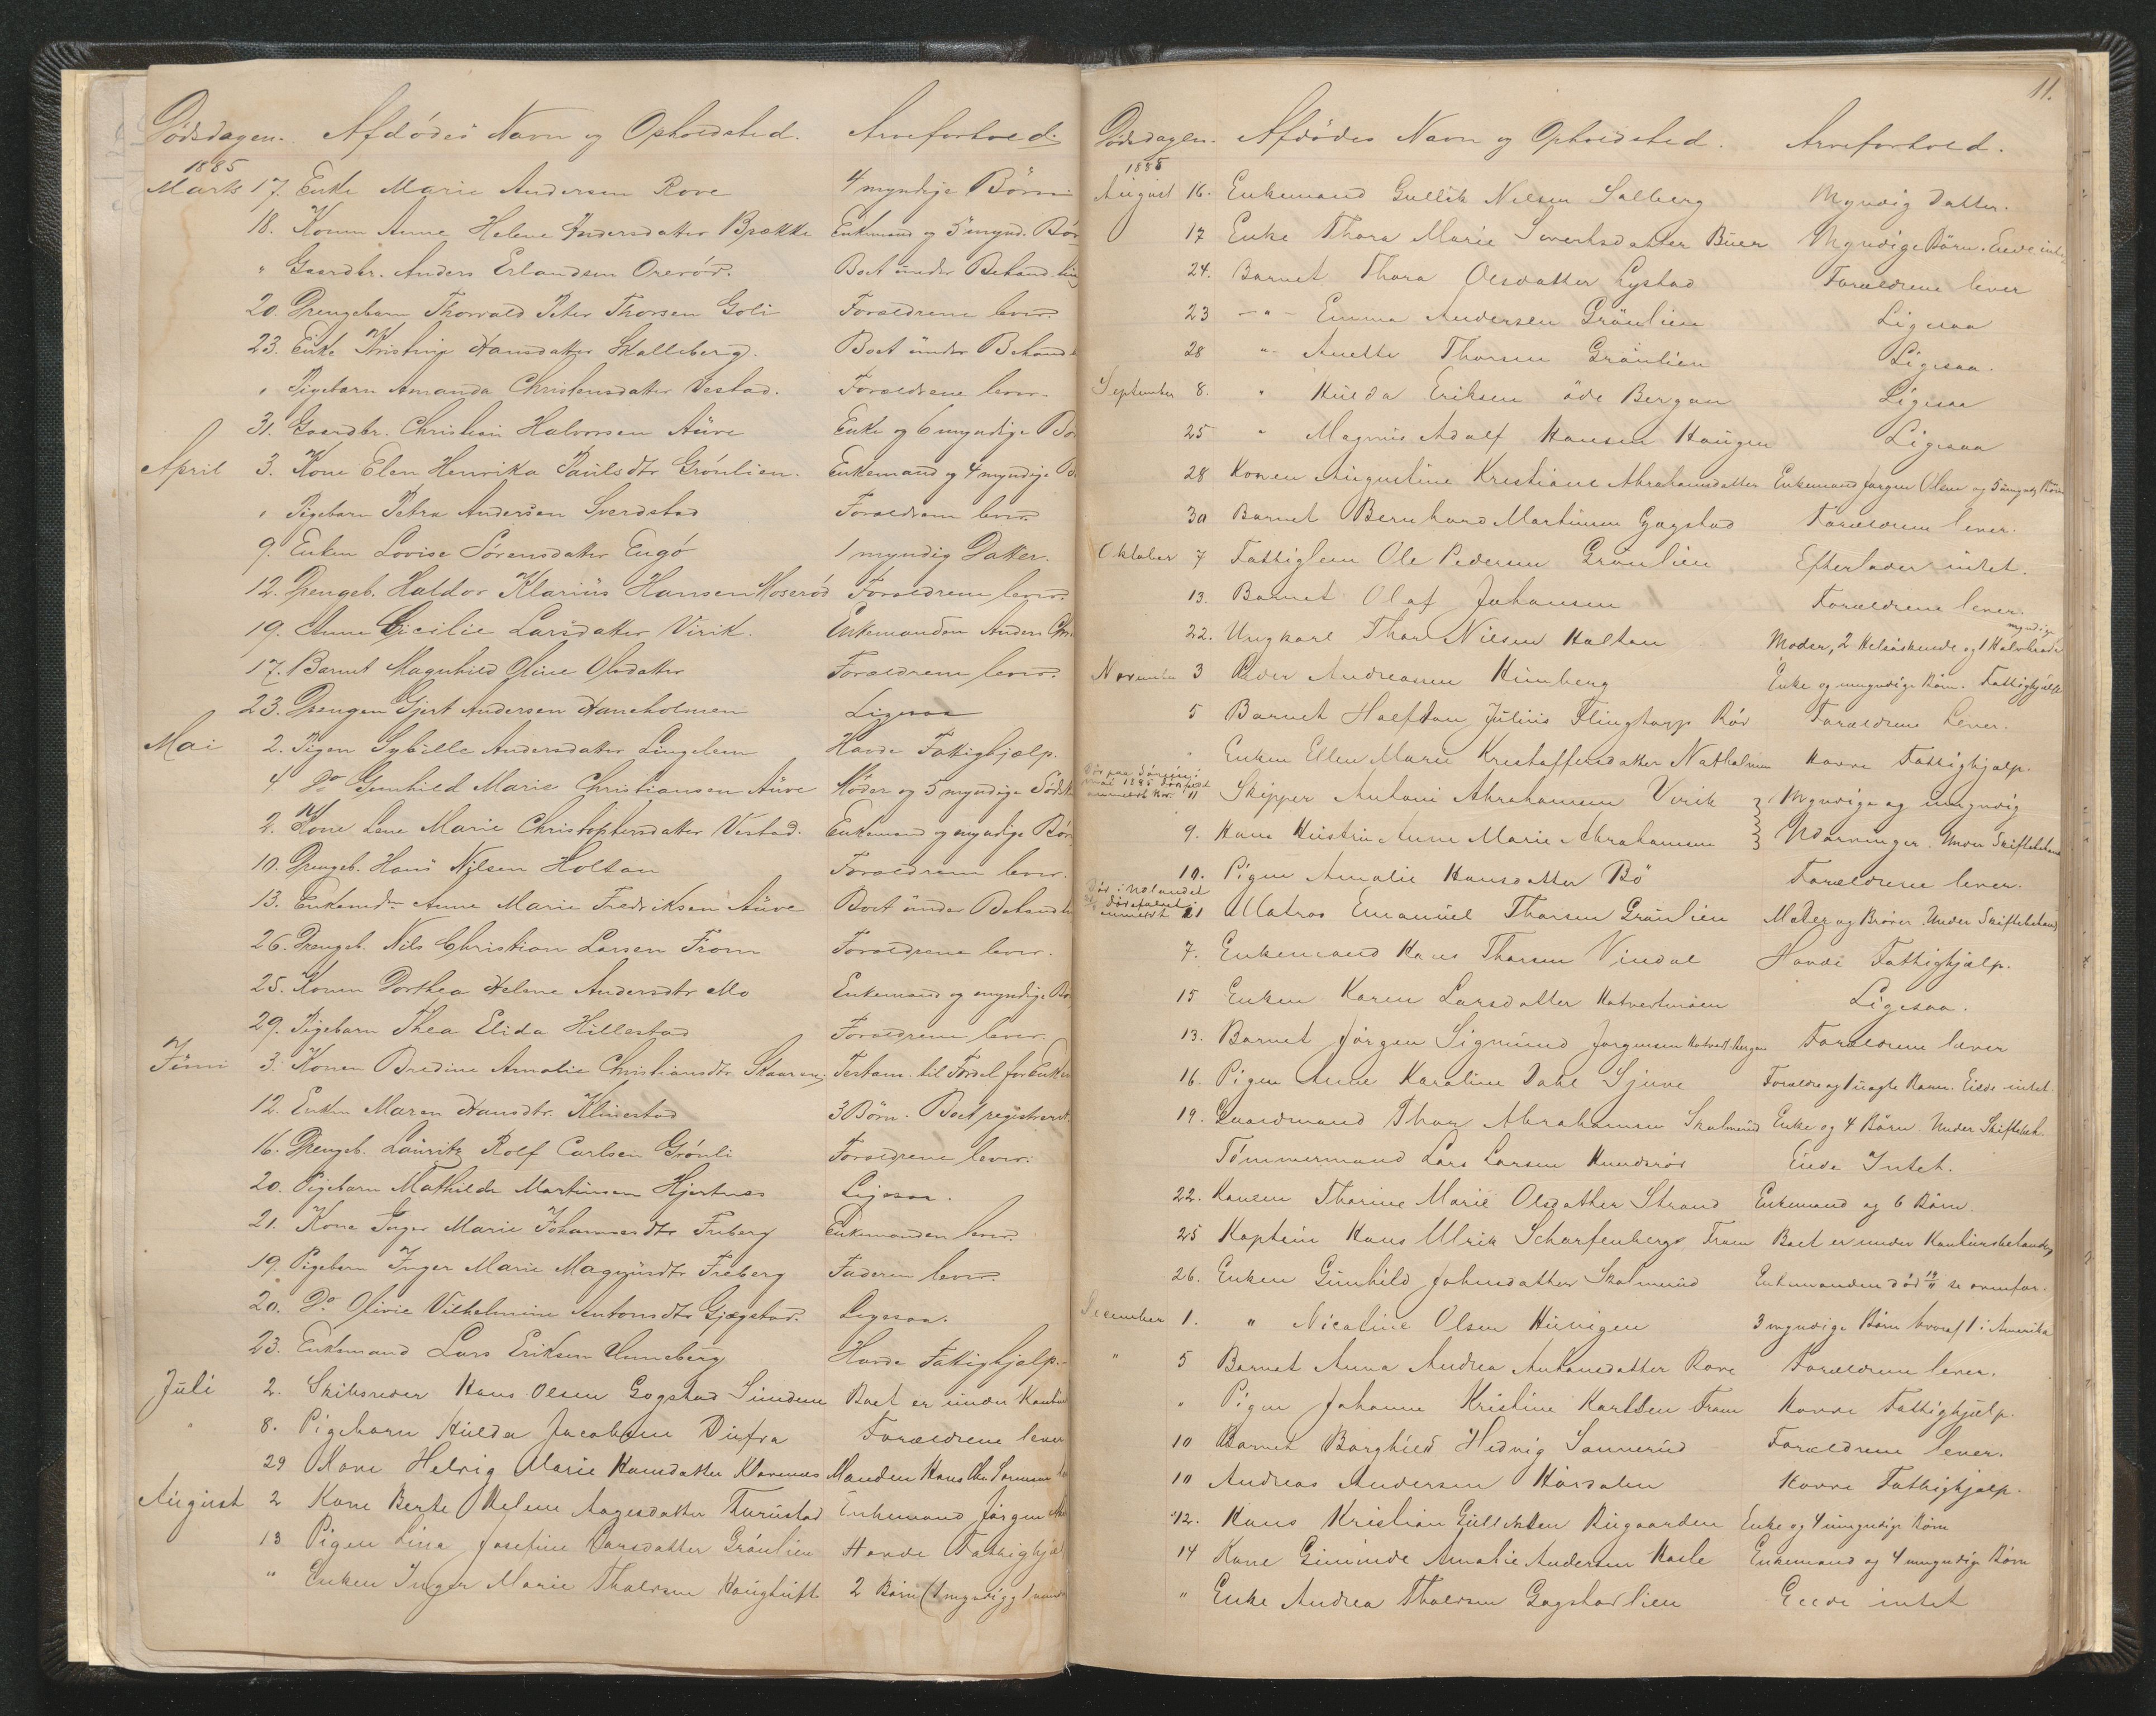 Dödsdagen. Afdödes Navn og Opholdsted. Arveforhold.
1885
Marts 17. Enke Marie Andersen Rove 4 myndige Börn.
18. Konen Anne Helene Andersdatter Brekke Enkemand og 5 mynd. Bör
" Gaardbr. Anders Erlandsen Orerød. Boet under Behandling
20. Drengebarn Thorvald Peter Thorsen Goli Forældrene lever.
23. Enke Kristine Hansdatter Skalleberg. Boet under Behand
" Pigebarn Amanda Christensdatter Vestad. Forældrene lever.
31. Gaardbr. Christian Halvorsen Auve Enke og 6 myndige Bör
April 3. Kone Elen Henrika Paulsdtr Grönlien. Enkemand og 4 myndige B
" Pigebarn Petra Andersen Sverdstad Forældrene lever.
9. Enken Lovise Sörensdatter Engö 1 myndig Datter.
12. Drengeb. Haldor Klarius Hansen Moseröd Forældrene lever.
19. Anne Cicilie Larsdatter Virik. Enkemanden Anders Chr
17. Barnet Magnhild Oline Olsdatter Forældrene lever.
23. Drengen Gjert Andersen Haneholmen Ligesaa
Mai 2. Pigen Sybille Andersdatter Lingelem Havde Fattighjælp.
4 Do Gunhild Marie Christiansen Auve Moder og 5 myndige Södsk
2. Kone Lene Marie Christophersdatter Vestad. Enkemand og myndige Bör
10. Drengeb. Hans Nilsen Holtan Forældrene lever.
13. Enkemd Anne Marie Fredriksen Auve Boet under Behandl
26. Drengeb. Nils Christian Larsen From Forældrene lever.
25. Konen Dorthea Helene Andersdtr Mo Enkemand og myndige Bö
29. Pigebarn Thea Elida Hillestad Forældrene lever.
Juni 3. Konen Bredine Amalie Christiansdtr Skaaren Testam. til Fordel for Enken
12. Enken Maren Hansdtr. Klinestad 3 Börn. Boet registreret.
16. Drengeb. Lauritz Rolf Carlsen Grönli Forældrene lever.
20. Pigebarn Mathilde Martinsen Hjertnes Ligesaa.
21. Kone Inger Marie Johannesdtr Freberg Enkemanden lever.
19. Pigebarn Inger Marie Magnusdtr Freberg Faderen lever.
20. Do Olivie Vilhelmine Antonsdtr Gjøgstad. Ligesaa.
23. Enkemand Lars Eriksen Unneberg Havde Fattighjelp.
Juli 2. Skibsreder Hans Olsen Gogstad Sundene Boet er under Konkur
" 8. Pigebarn Hulda Jacobsen Forældrene lever
29 Kone Helvig Marie Hansdatter Klavenes Manden Hans Chr. Sörensen
August 2 Kone Berte Helene Aagesdatter Furustad Enkemand Jörgen
13 Pigen Lina Josefine Larsdatter Grönlien Havde Fattighjæl
" Enken Inger Marie Thoresen Haughuft 2 Börn (1 myndig 1
11.
Dödsdagen. Afdödes Navn og Opholdsted. Arveforhold.
1885
August 16. Enkemand Gullik Nilsen Solberg Myndig Datter.
17 Enke Thora Marie Sivertsdatter Buer Myndige Börn. Eiede intet
24. Barnet Thora Olsdatter Lystad Forældrene lever
23 -"- Emma Andersen Grönlien Ligesaa
28 " Anette Thorsen Grönlien Ligesaa.
September 8. " Hulda Eriksen öde Bergan Ligesaa
25 " Magnus Adolf Hansen Haugen Ligesaa
28 Konen Augustine Kristiane Abrahamsdatter Enkemand Jörgen Olsen og 5 umyndg Börn
30 Barnet Bernhard Martinsen Gogstad Forældrene lever.
Oktober 7 Fattiglem Ole Pedersen Grönlien Efterlader intet.
13. Barnet Olaf Johansen Forældrene lever.
22. Ungkarl Thor Nilsen Holtan Moder, 2 Helsöskende og 1 myndige Halvbroder
November 3 Peder Andreassen Himberg Enke og umyndige Börn. Fattighjælp
5 Barnet Halfdan Julius Flingtorp Rör Forældrene Lever.
" Enken Ellen Marie Kristoffersdatter Natholmen Havde Fattighjælp.
11 Skipper Antoni Abrahamsen Virik Myndige og umyndig
9. Hans Hustru Anne Marie Abrahamsen Udarvinger. Under Skiftebehand
10. Pigen Amalie Hansdatter Bö Forældrene lever.
Död i Udlandet
21 Matros Emanuel Thorsen Grönlien Moder og Brödre. Under Skiftebehand
7. Enkemand Hans Thorsen Vindal Havde Fattighjælp.
15 Enken Karen Larsdatter Hotvedtmoen Ligesaa.
13. Barnet Jörgen Sigmund Jörgensen Hotvedt Bergan Forældrene lever
16. Pigen Anne Karoline Dahl Sjuve Forældre og 1 uægte Barn. Eiede intet
19. Gaardmand Thor Abrahamsen Skolmerud Enke og 4 Börn. Under Skiftebeh.
Tömmermand Lars Larsen Hundsröd Eiede Intet.
22. Konen Thorine Marie Olsdatter Strand Enkemand og 6 Börn.
25 Kaptein Hans Ulrik Scharfenberg Fram Boet er under Konkursbehandlg
26. Enken Gunhild Johnsdatter Skolmerud Enkemanden död 19/11 se ovenfor.
December 1. " Nicoline Olsen Hunigen 3 myndige Börn hvoraf 1 i Amerika
" 5 Barnet Anna Andrea Antonsdatter Rove Forældrene lever.
" Pigen Johanne Kristine Karlsen Fram Havde Fattighjælp.
10 Barnet Borghild Hedvig Sannerud Forældrene lever.
10 Andreas Andersen Haasdalen Havde Fattighjælp.
12. Hans Kristian Gulliksen Rugaarden Enke og 4 umyndige Börn
14 Kone Gurinde Amalie Andersen Hasle Enkemand og 4 umyndige Börn
" Enke Andrea Thoresen Gogstadlien Eiede intet